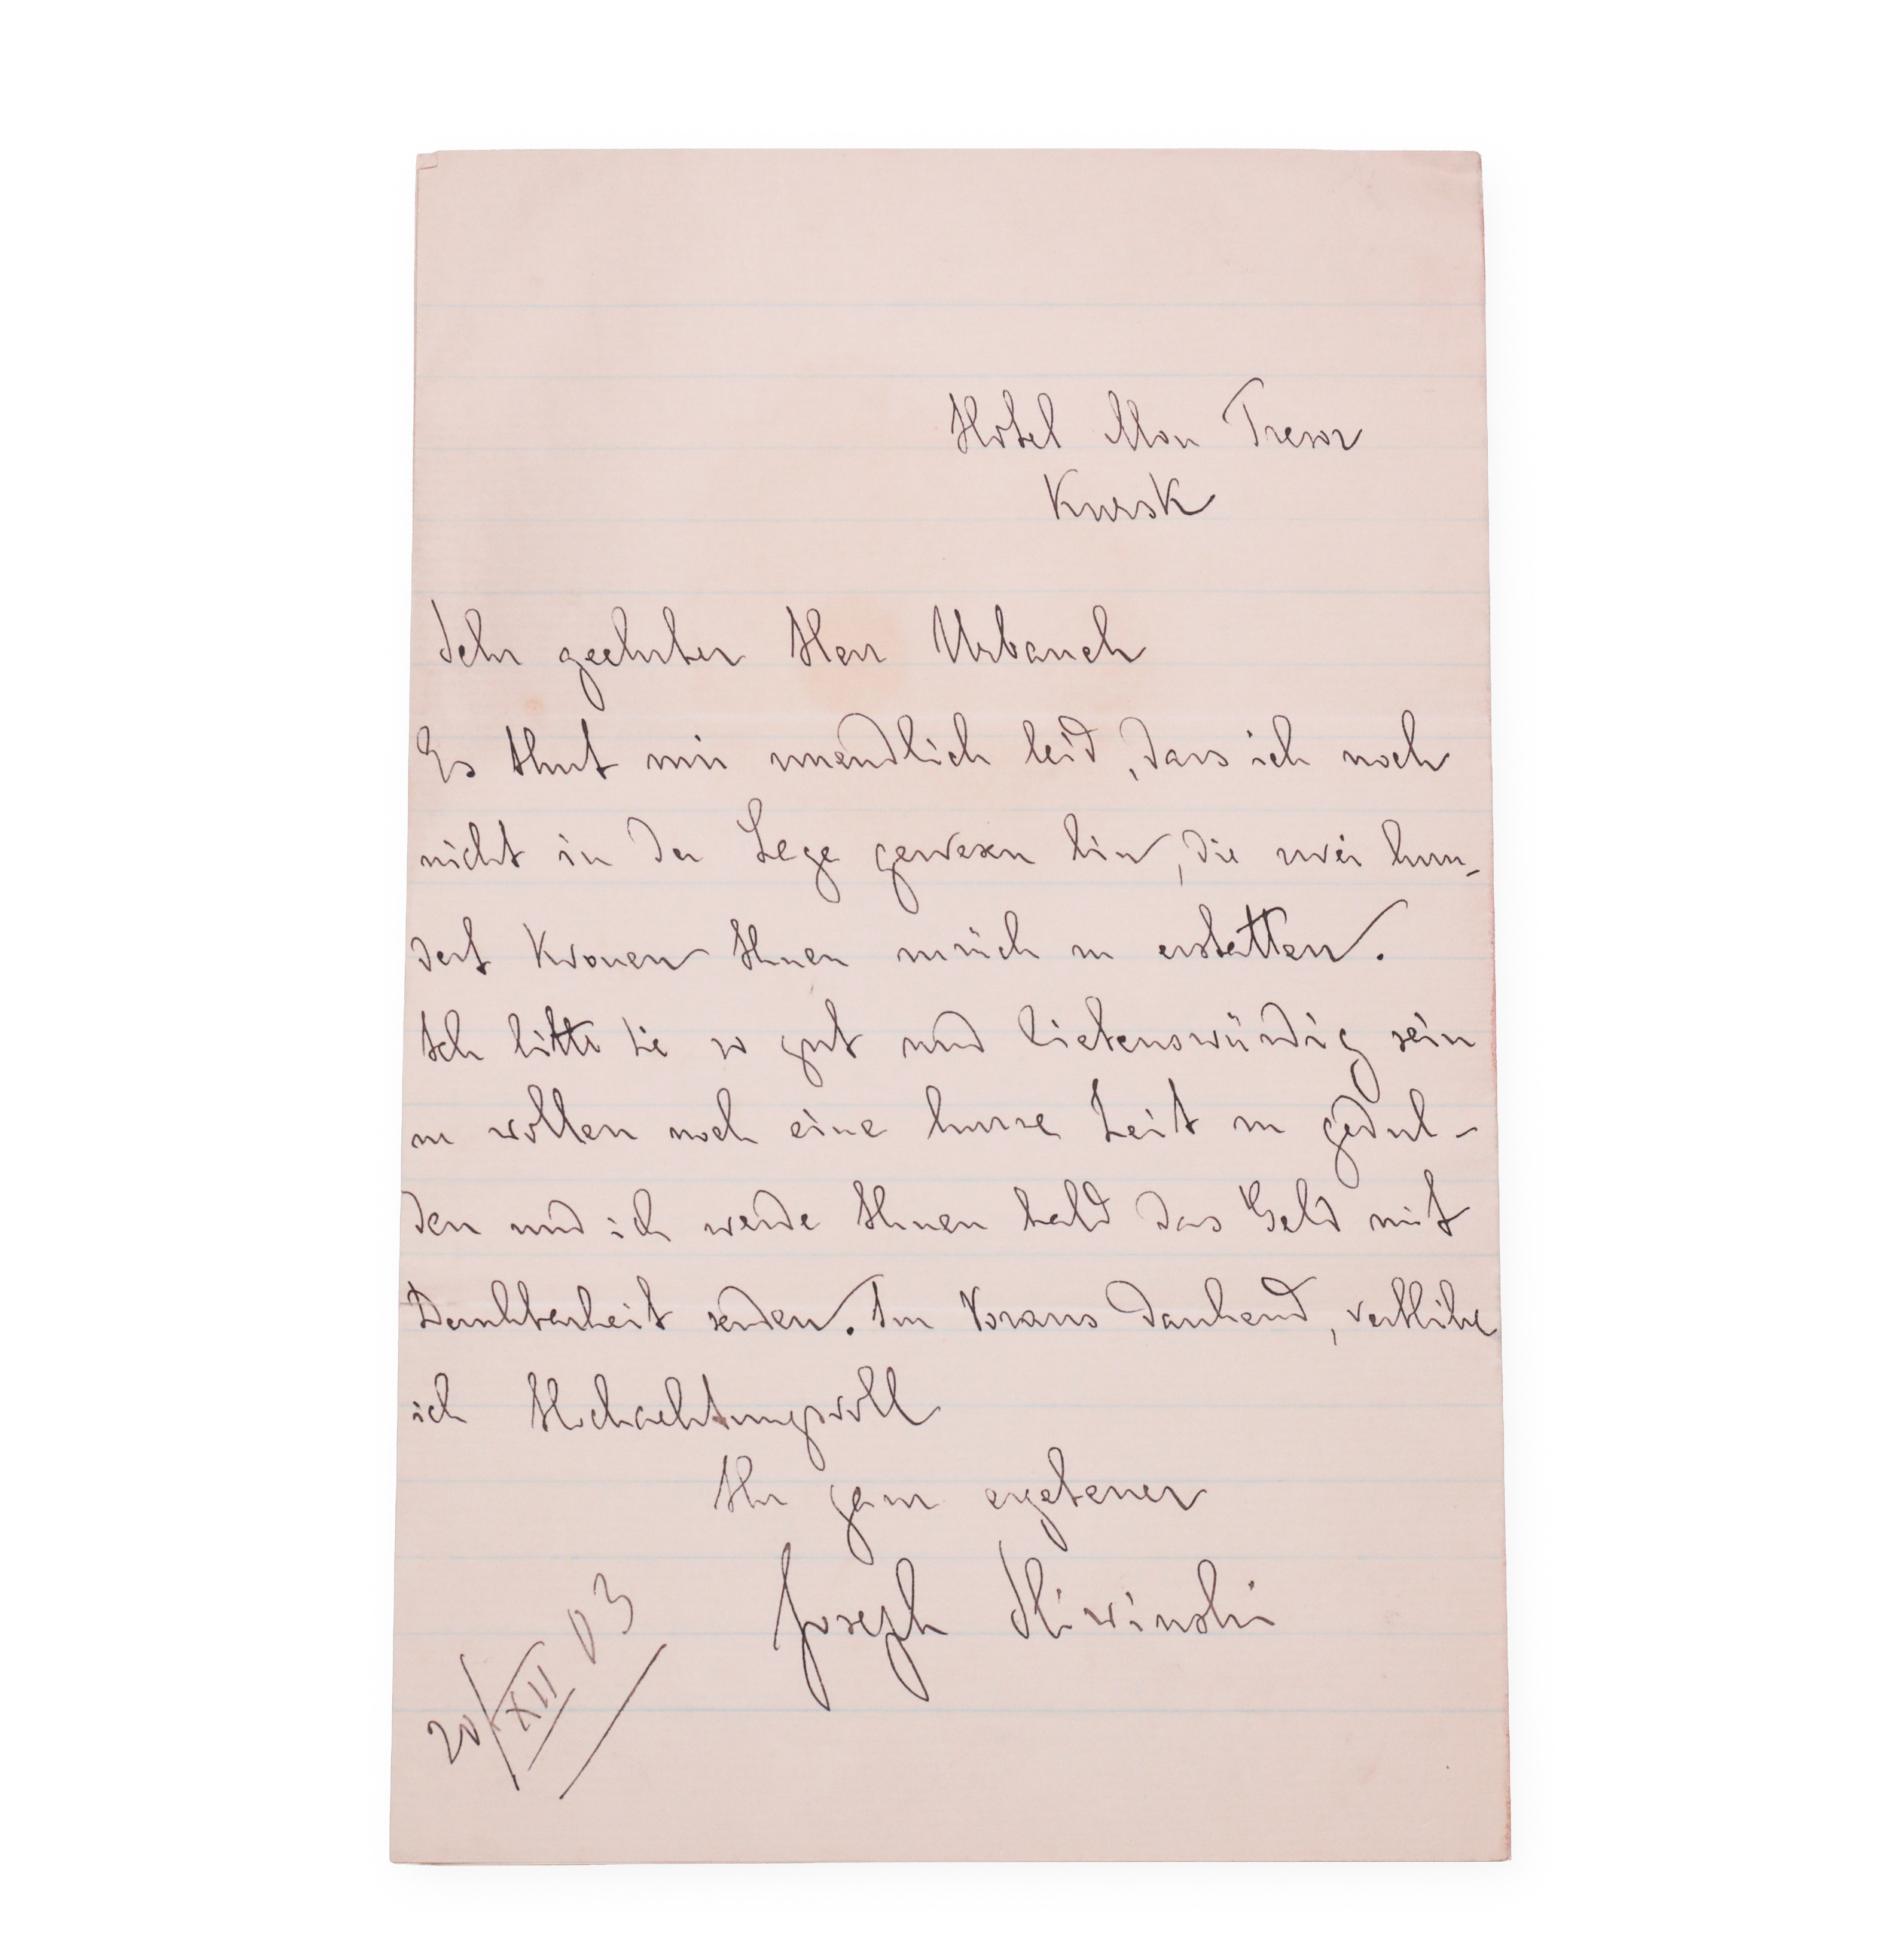 Hôtel Mon Tresor
Kursk
Sehr geehrter Herr Urbanek
Es thut mir unendlich leid, dass ich noch
nicht in der Lage gewesen bin, die zwei hun-
dert Kronen Ihnen zurück zu erstatten.
Ich bitte Sie so gut und liebenswürdig sein
zu wollen noch eine kurze Zeit zu gedul-
den und ich werde Ihnen bald das Geld mit
Dankbarkeit senden. Im Voraus dankend, verblibe
ich Hochachtungsvoll
Ihr ganz ergebener
Joseph Sliwinski
20/XII 03